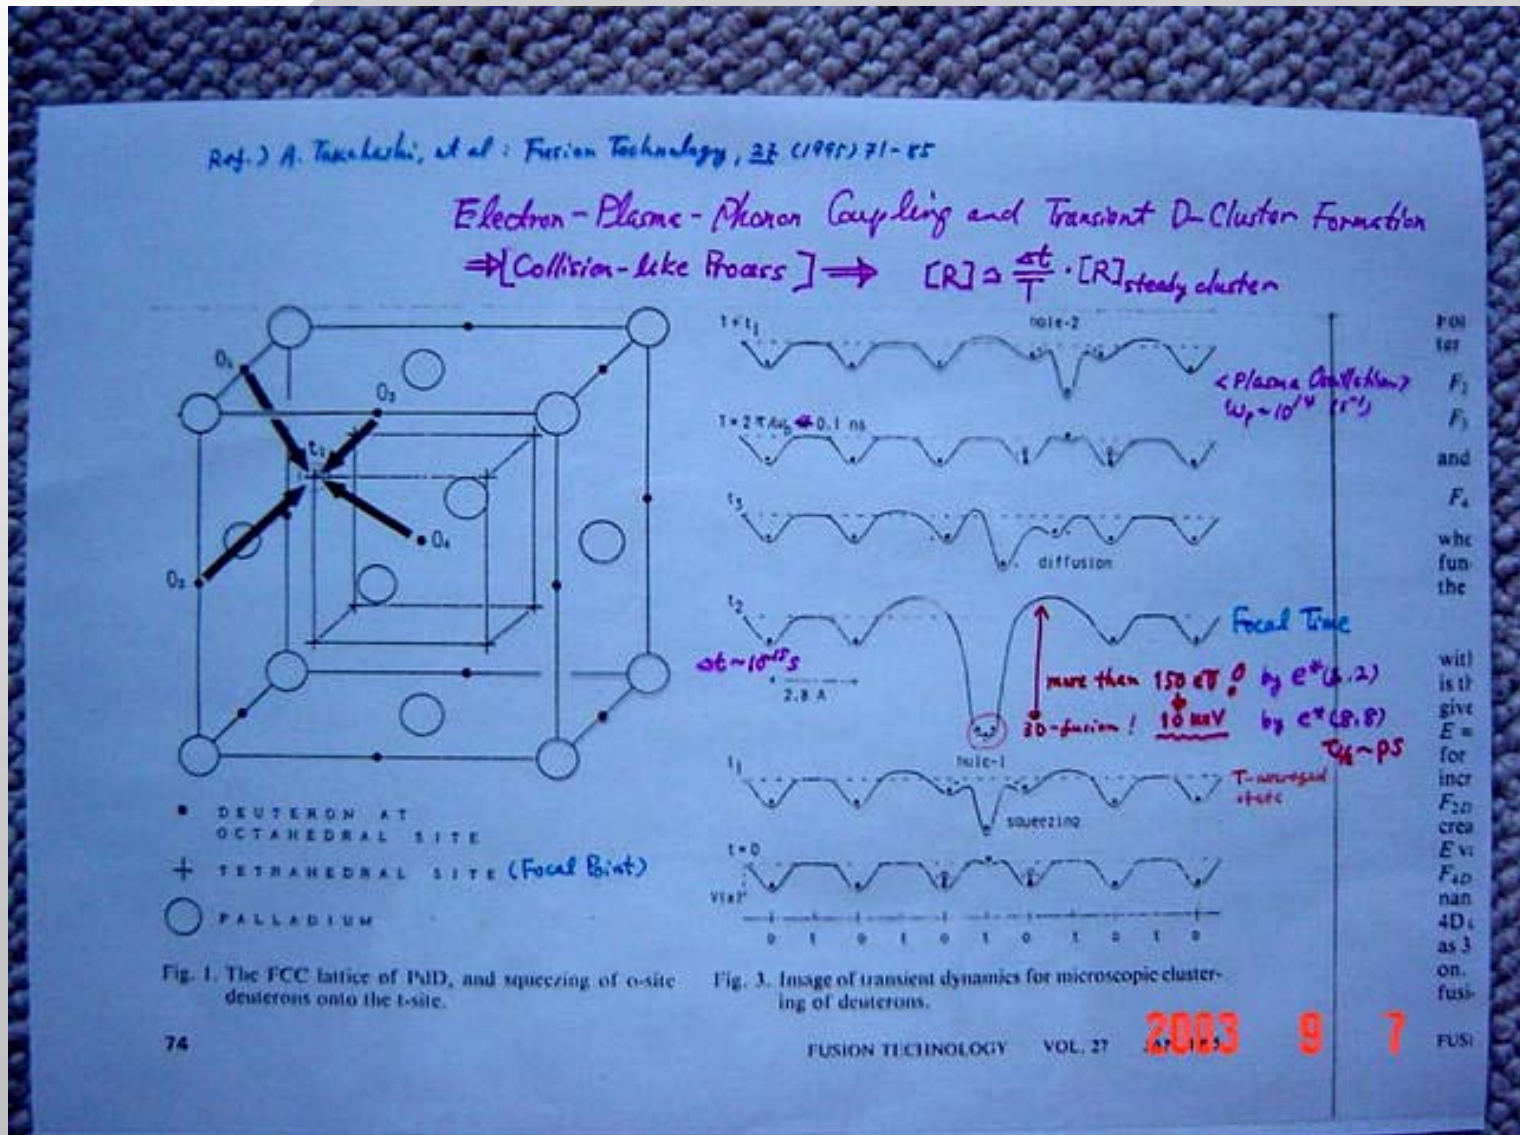 Ref.) A. Takahashi, et al : Fusion Technology, 27 (1995) 71-85
Electron-Plasma-Phonon Coupling and Transient D-Cluster Formation
⇒[Collision-like Process]⇒ [R] ≃ Δt/T · [R] steady cluster
O₃
t₂
O₄
O₂
• DEUTERON AT
OCTAHEDRAL SITE
+ TETRAHEDRAL SITE (Focal Point)
○ PALLADIUM
Fig. 1. The FCC lattice of PdD, and squeezing of o-site
deuterons onto the t-site.
t+t₁
hole-2
<Plasma Oscillation>
ωp ~ 10¹⁴ (s⁻¹)
0.1 ns
t₃
diffusion
t₂
Focal Time
Δt~10⁻¹⁵s
2.8 A
more than 150 eV! by e*
3D-fusion! 10 keV by e*(8,8)
~ps
hole-1
t₁
T-averaged
state
squeezing
t=0
V(x)
o t o t o t o t o t o
Fig. 3. Image of transient dynamics for microscopic cluster-
ing of deuterons.
74
FUSION TECHNOLOGY VOL. 27
2003 9 7
ter
F₃
and
F₄
the
give
for
incr
F₂D
crea
F₄D
nan
as 3
on.
fusi-
FUSI